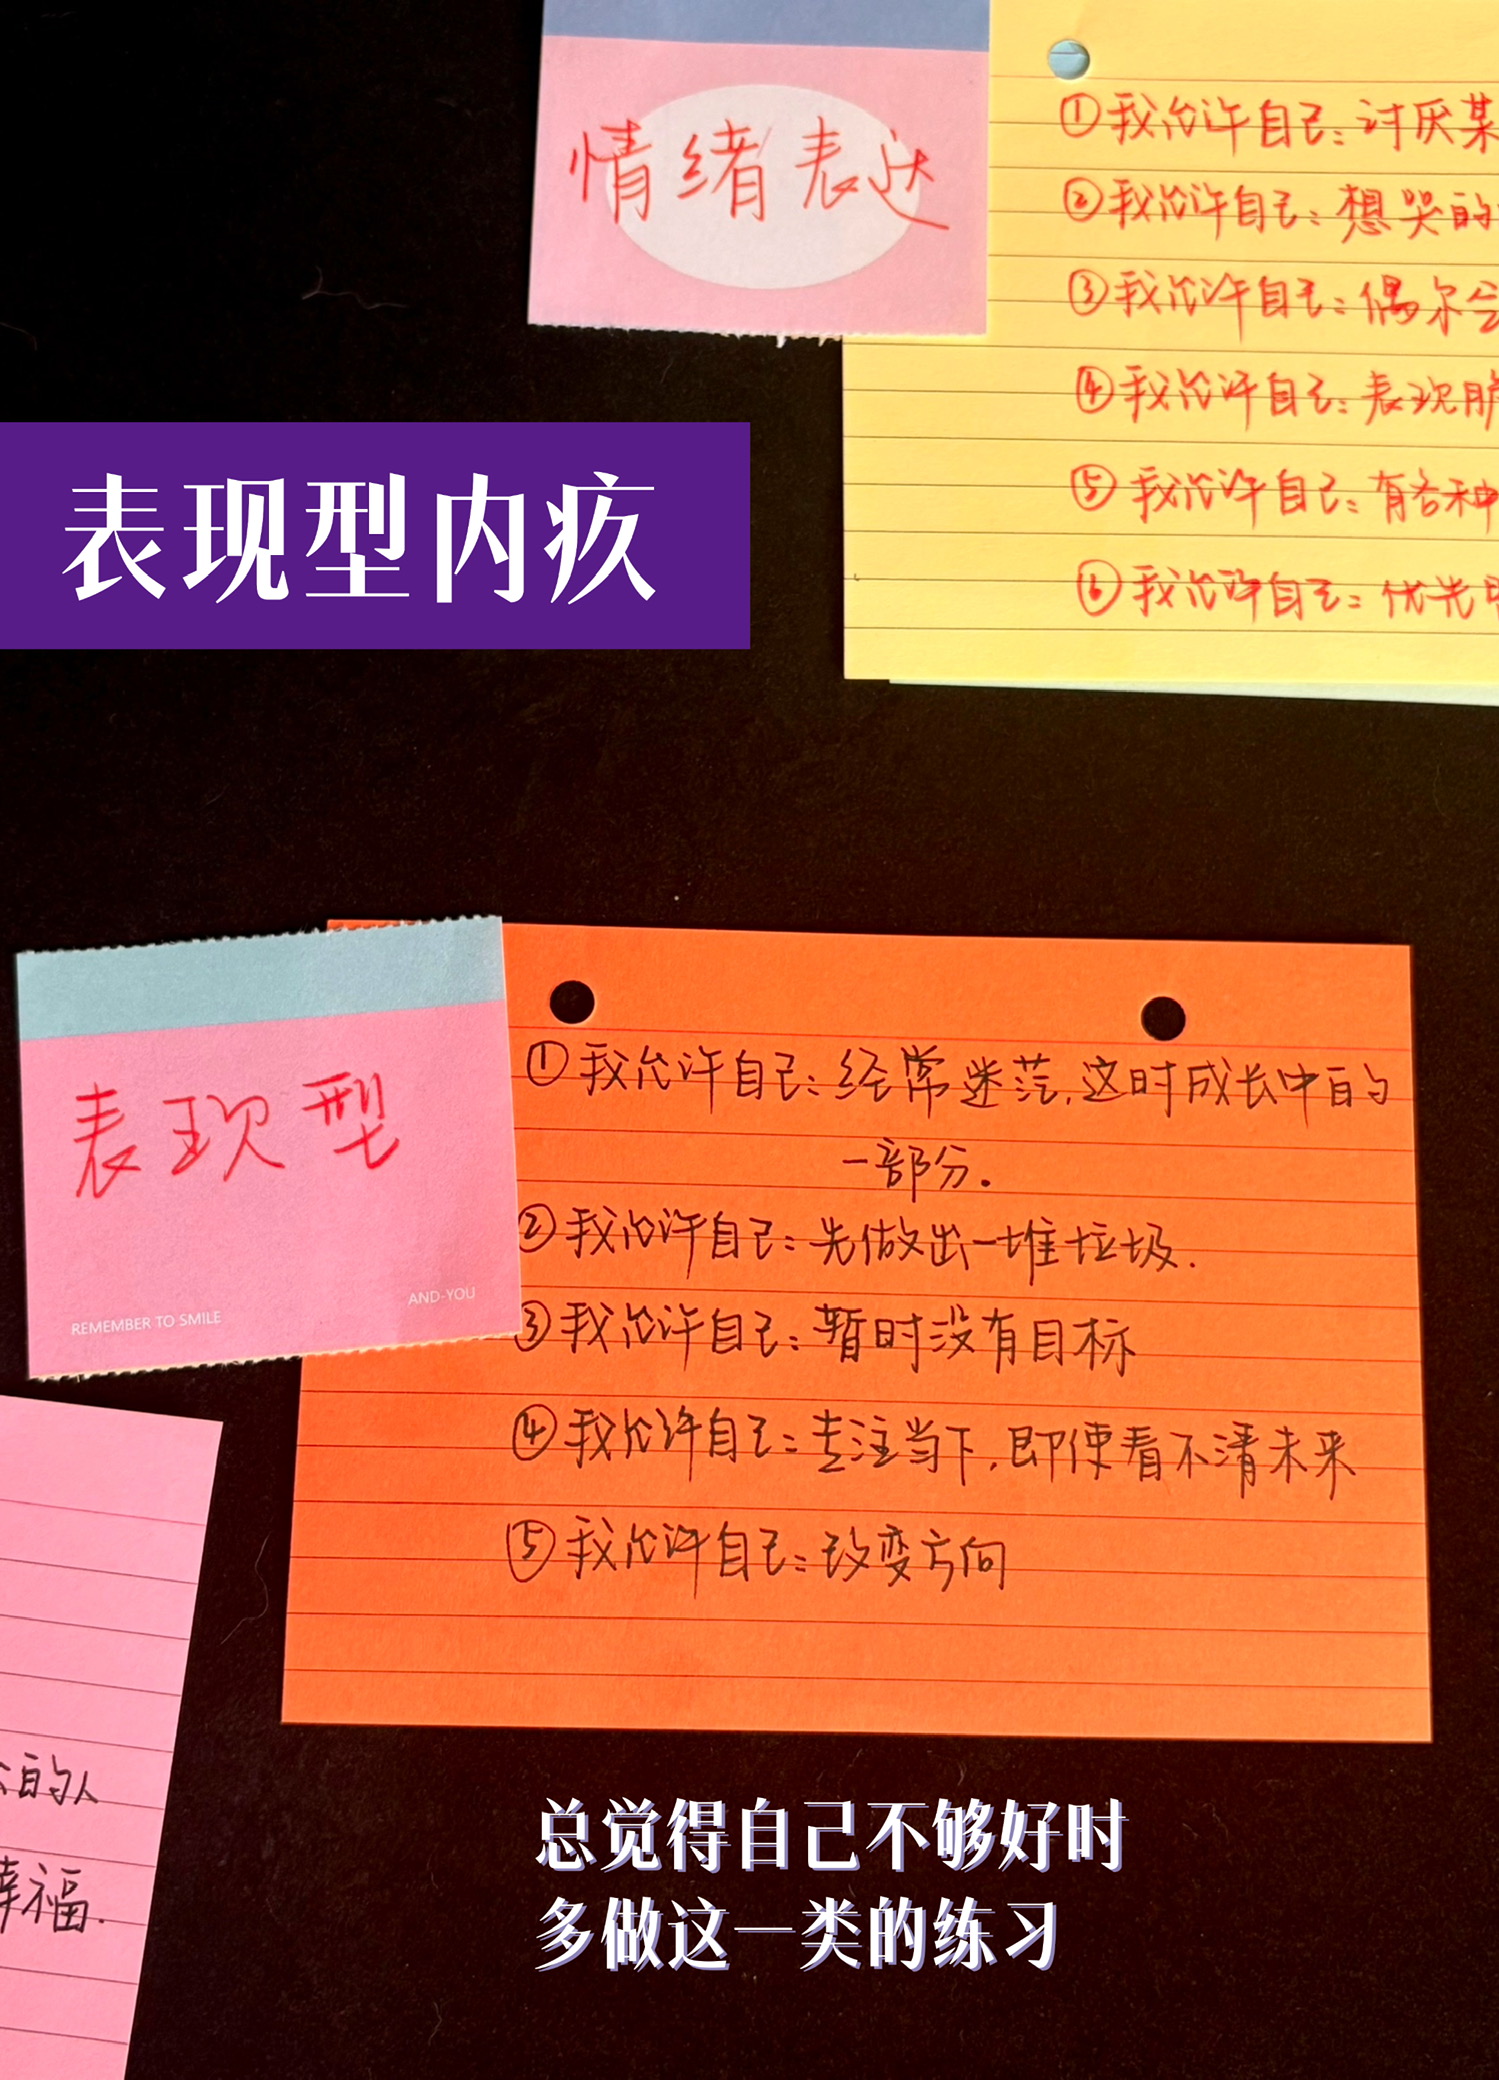 情绪表达
①我允许自己:讨厌某
②我允许自己:想哭的
③我允许自己:偶尔会
④我允许自己:表现脆
⑤我允许自己:有各种
⑥我允许自己:优先
表现型内疚
表现型
REMEMBER TO SMILE
AND-YOU
①我允许自己:经常迷茫,这时成长中的
一部分.
②我允许自己:先做出一堆垃圾.
③我允许自己:暂时没有目标
④我允许自己:专注当下,即使看不清未来
⑤我允许自己:改变方向
的人
幸福.
总觉得自己不够好时
多做这一类的练习